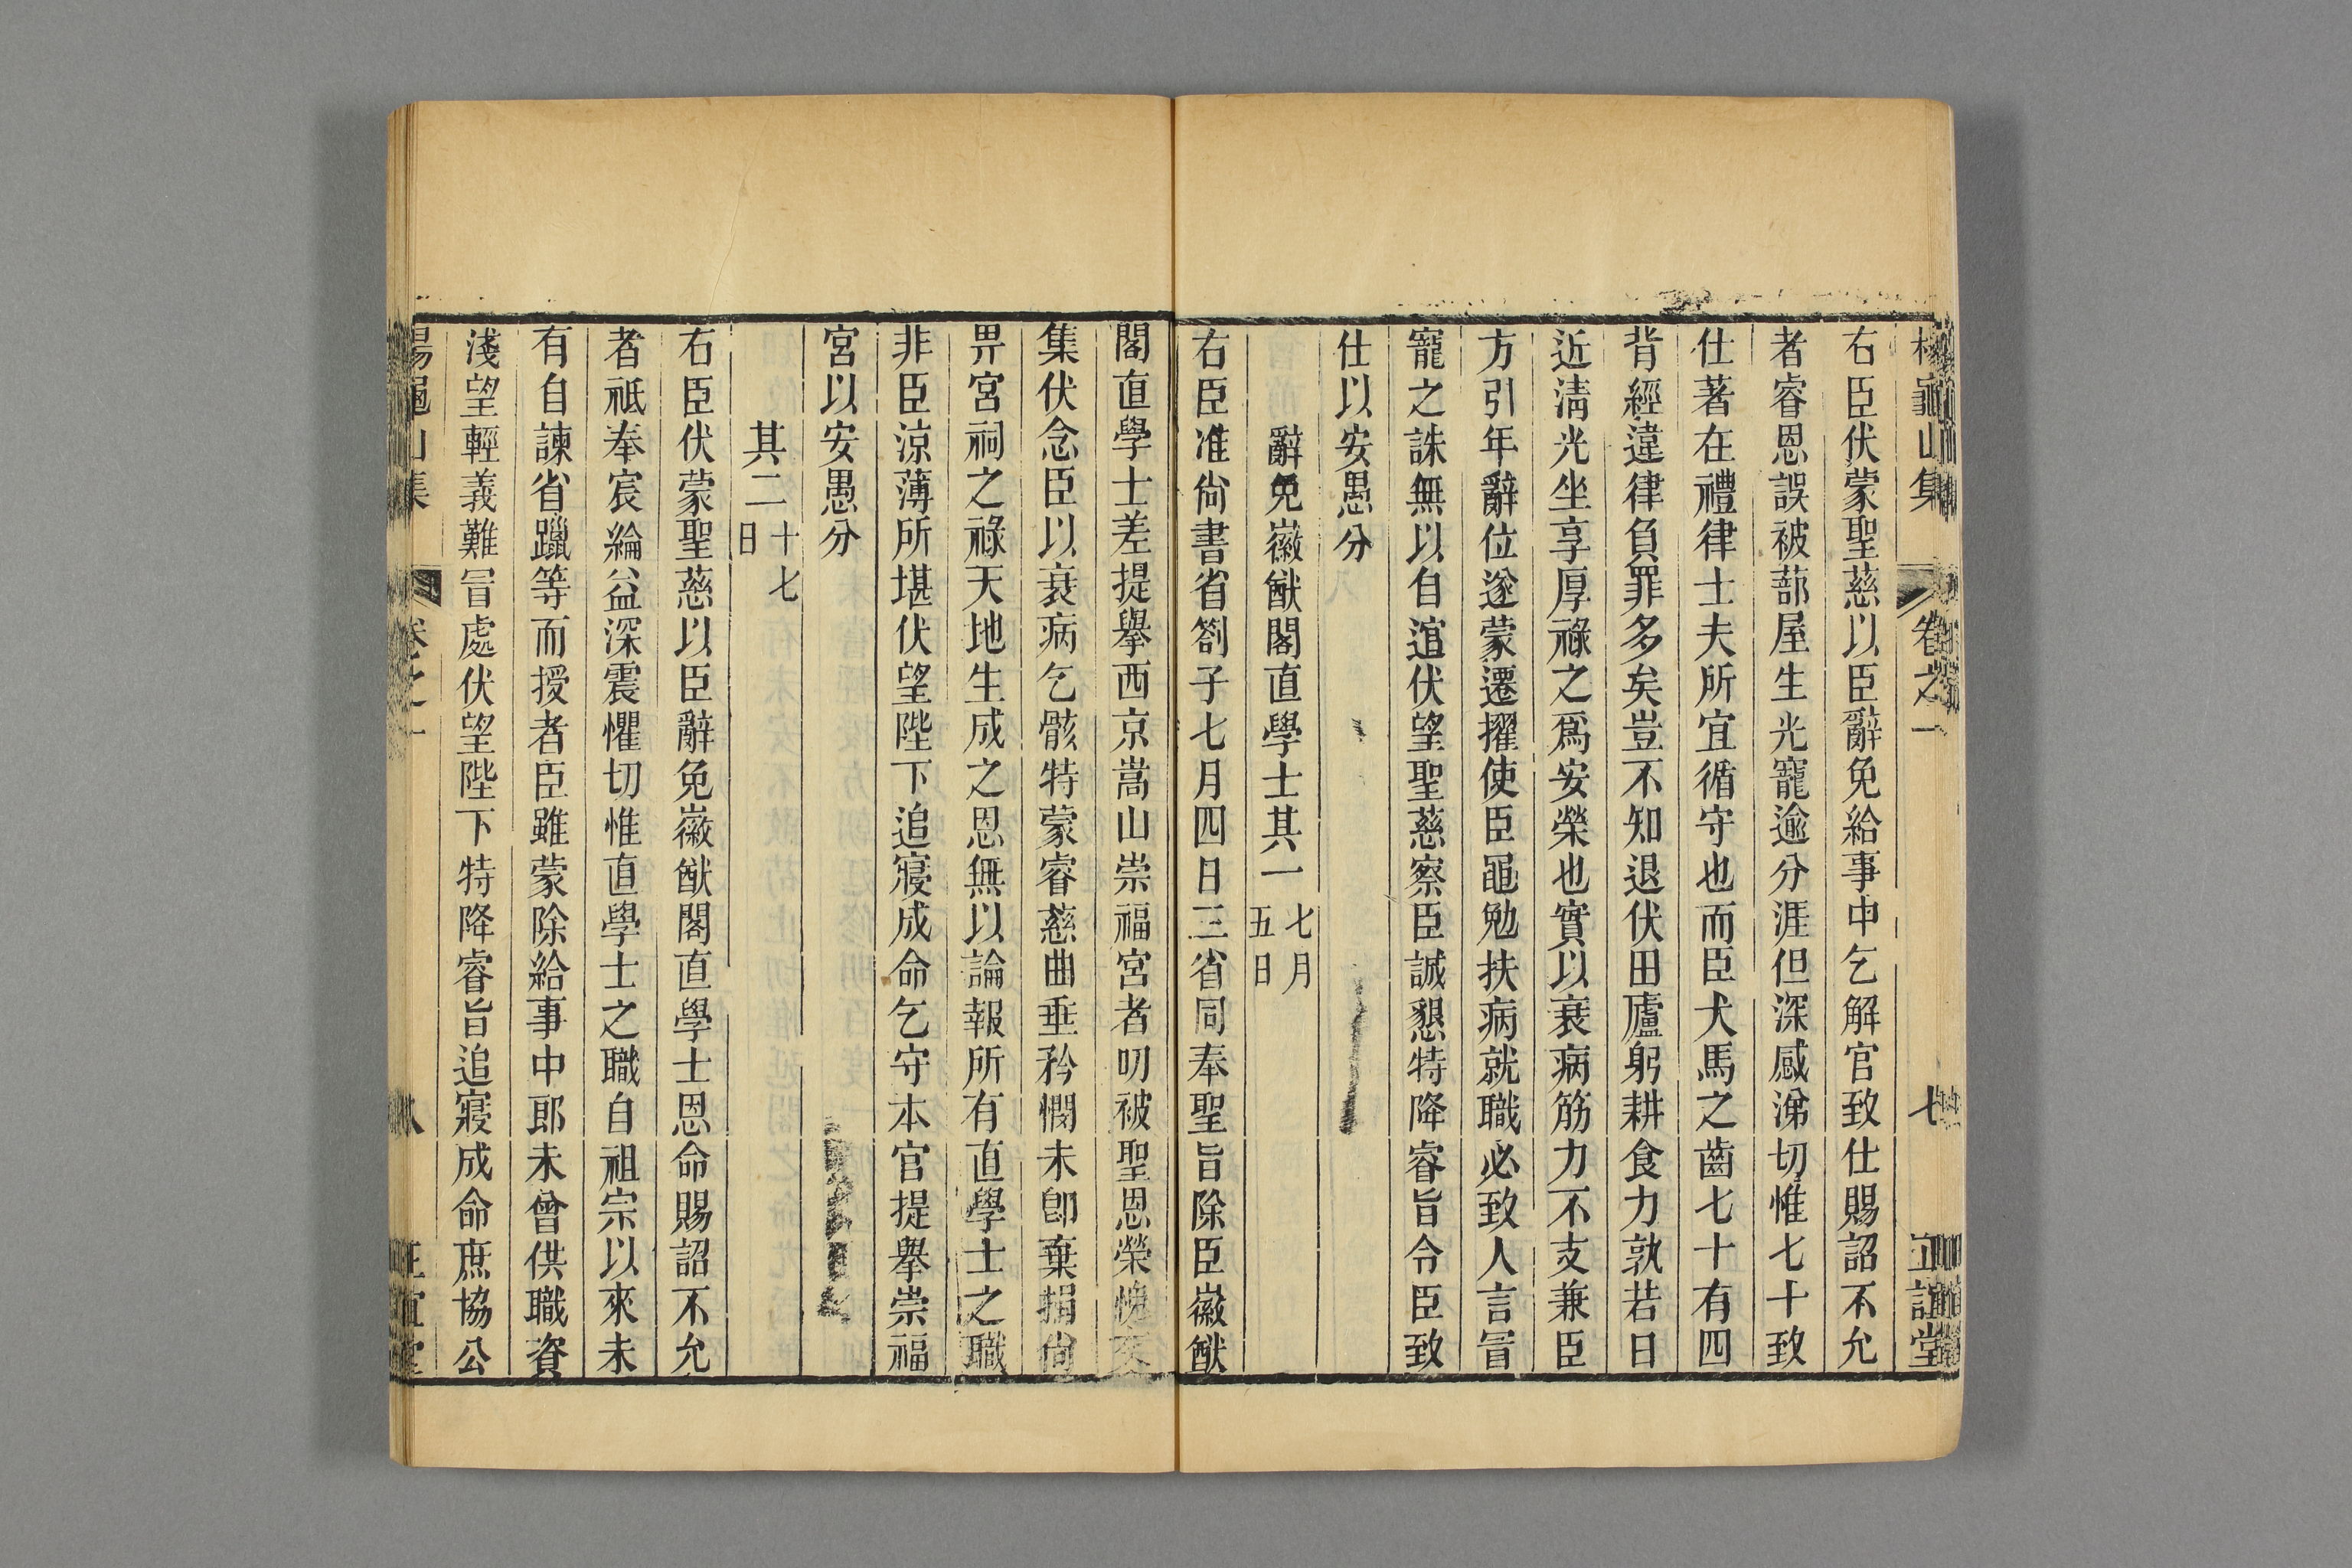 楊龜山集 卷之一 七 正誼堂
右臣伏蒙聖慈以臣辭免給事中乞解官致仕賜詔不允
者睿恩誤被蔀屋生光寵逾分涯但深感涕切惟七十致
仕著在禮律士夫所宜循守也而臣犬馬之齒七十有四
背經違律負罪多矣豈不知退伏田廬躬耕食力孰若日
近淸光坐享厚祿之爲安榮也實以衰病筋力不支兼臣
方引年辭位遂蒙遷擢使臣黽勉扶病就職必致人言冒
寵之誅無以自逭伏望聖慈察臣誠懇特降睿旨令臣致
仕以安愚分
辭免徽猷閣直學士其一七月五日
右臣准尙書省劄子七月四日三省同奉聖旨除臣徽猷
閣直學士差提舉西京嵩山崇福宮者叨被聖恩榮愧交
集伏念臣以衰病乞骸特蒙睿慈曲垂矜憫未卽棄捐尙
畀宮祠之祿天地生成之恩無以論報所有直學士之職
非臣涼薄所堪伏望陛下追寢成命乞守本官提舉崇福
宮以安愚分
其二十七日
右臣伏蒙聖慈以臣辭免徽猷閣直學士恩命賜詔不允
者祗奉宸綸益深震懼切惟直學士之職自祖宗以來未
有自諫省躐等而授者臣雖蒙除給事中郎未曾供職資
淺望輕義難冒處伏望陛下特降睿旨追寢成命庶協公
楊龜山集 卷之一 八 正誼堂